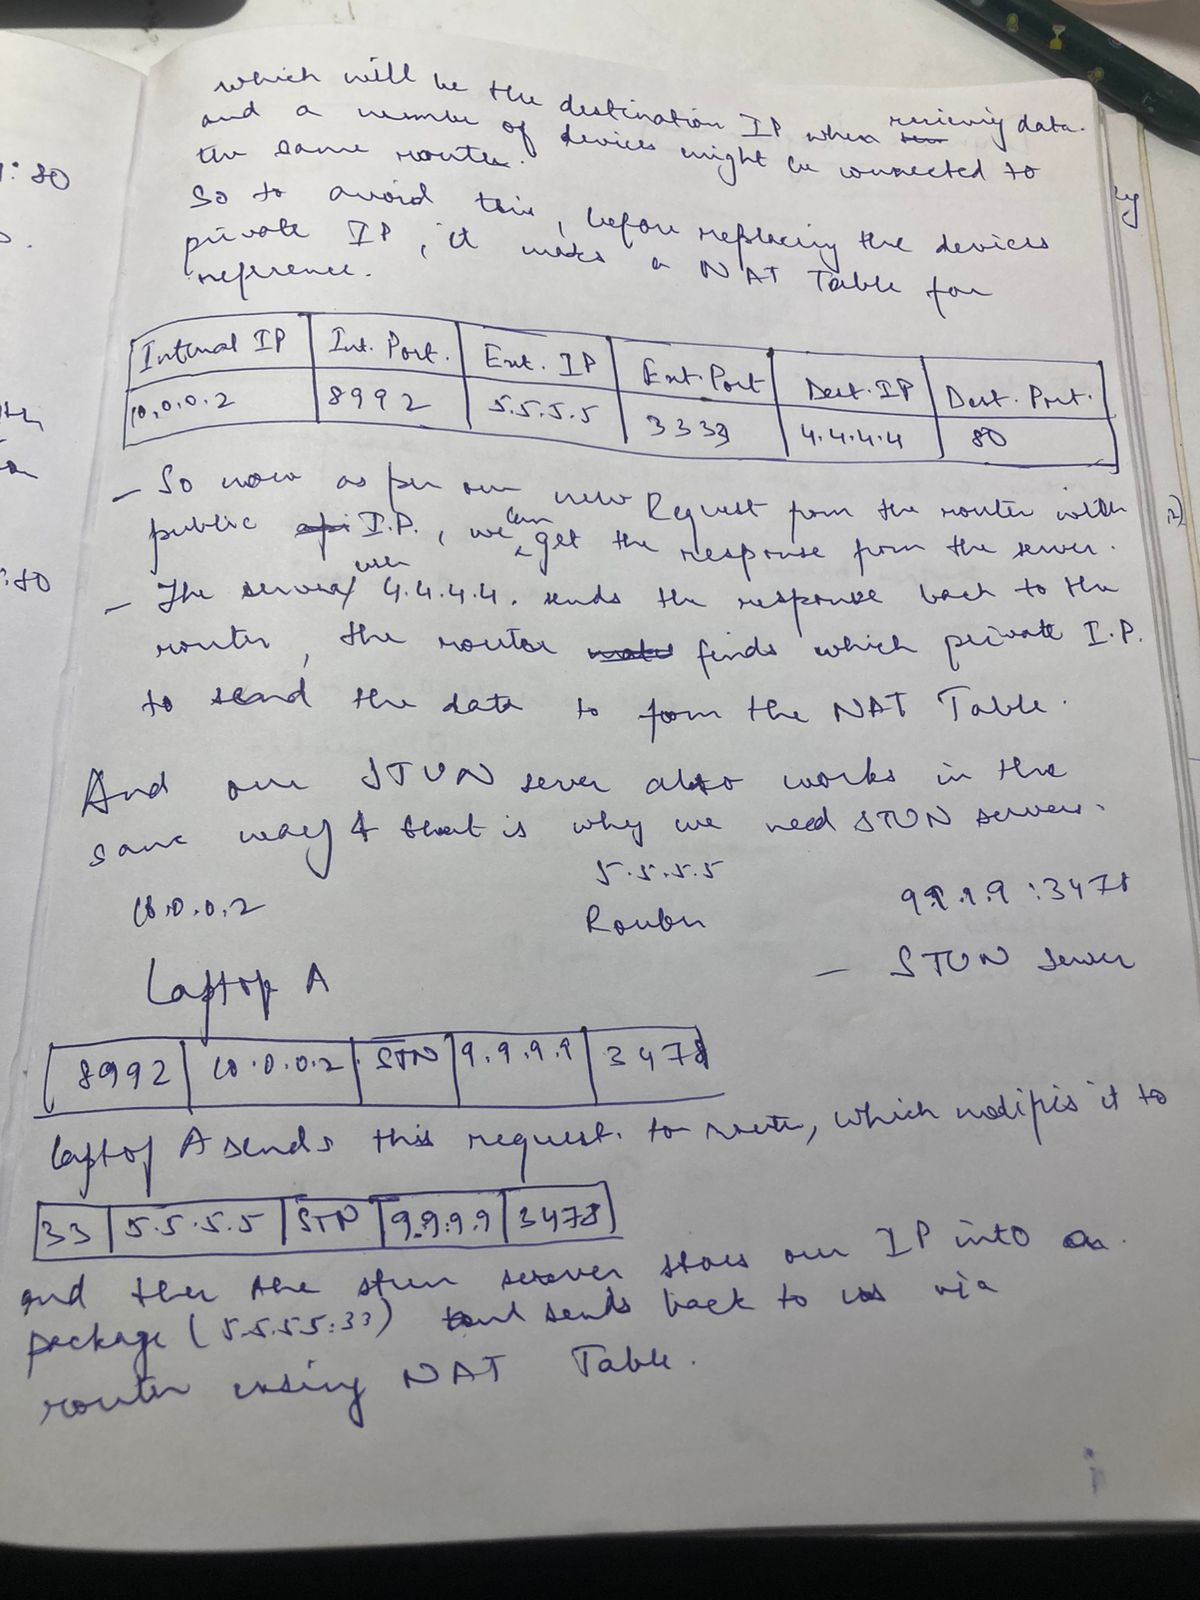 which will be the destination IP when recieving data.
and a number of devices might be connected to
the same router.
So to avoid this, before replacing the devices
private IP, it makes a NAT Table for
reference.
Internal IP | Int. Port. | Ext. IP | Ext. Port | Dest. IP | Dest. Port.
10.0.0.2 | 8992 | 5.5.5.5 | 3333 | 4.4.4.4 | 80
- So now as per our new Request from the router with
public I.P., we can get the response from the server.
- The server when 4.4.4.4. sends the response back to the
router, the router finds which private I.P.
to send the data to from the NAT Table.
And our STUN server also works in the
same way & that is why we need STUN servers.
10.0.0.2 5.5.5.5 9.9.9.9:3478
Laptop A Router - STUN server
8992 | 10.0.0.2 | STN | 9.9.9.9 | 3478
Laptop A sends this request. to route, which modifies it to
33 | 5.5.5.5 | STN | 9.9.9.9 | 3478
and then the stun server stores our IP into a
package (5.5.5.5:33) and sends back to us via
router using NAT Table.
1:80
:80